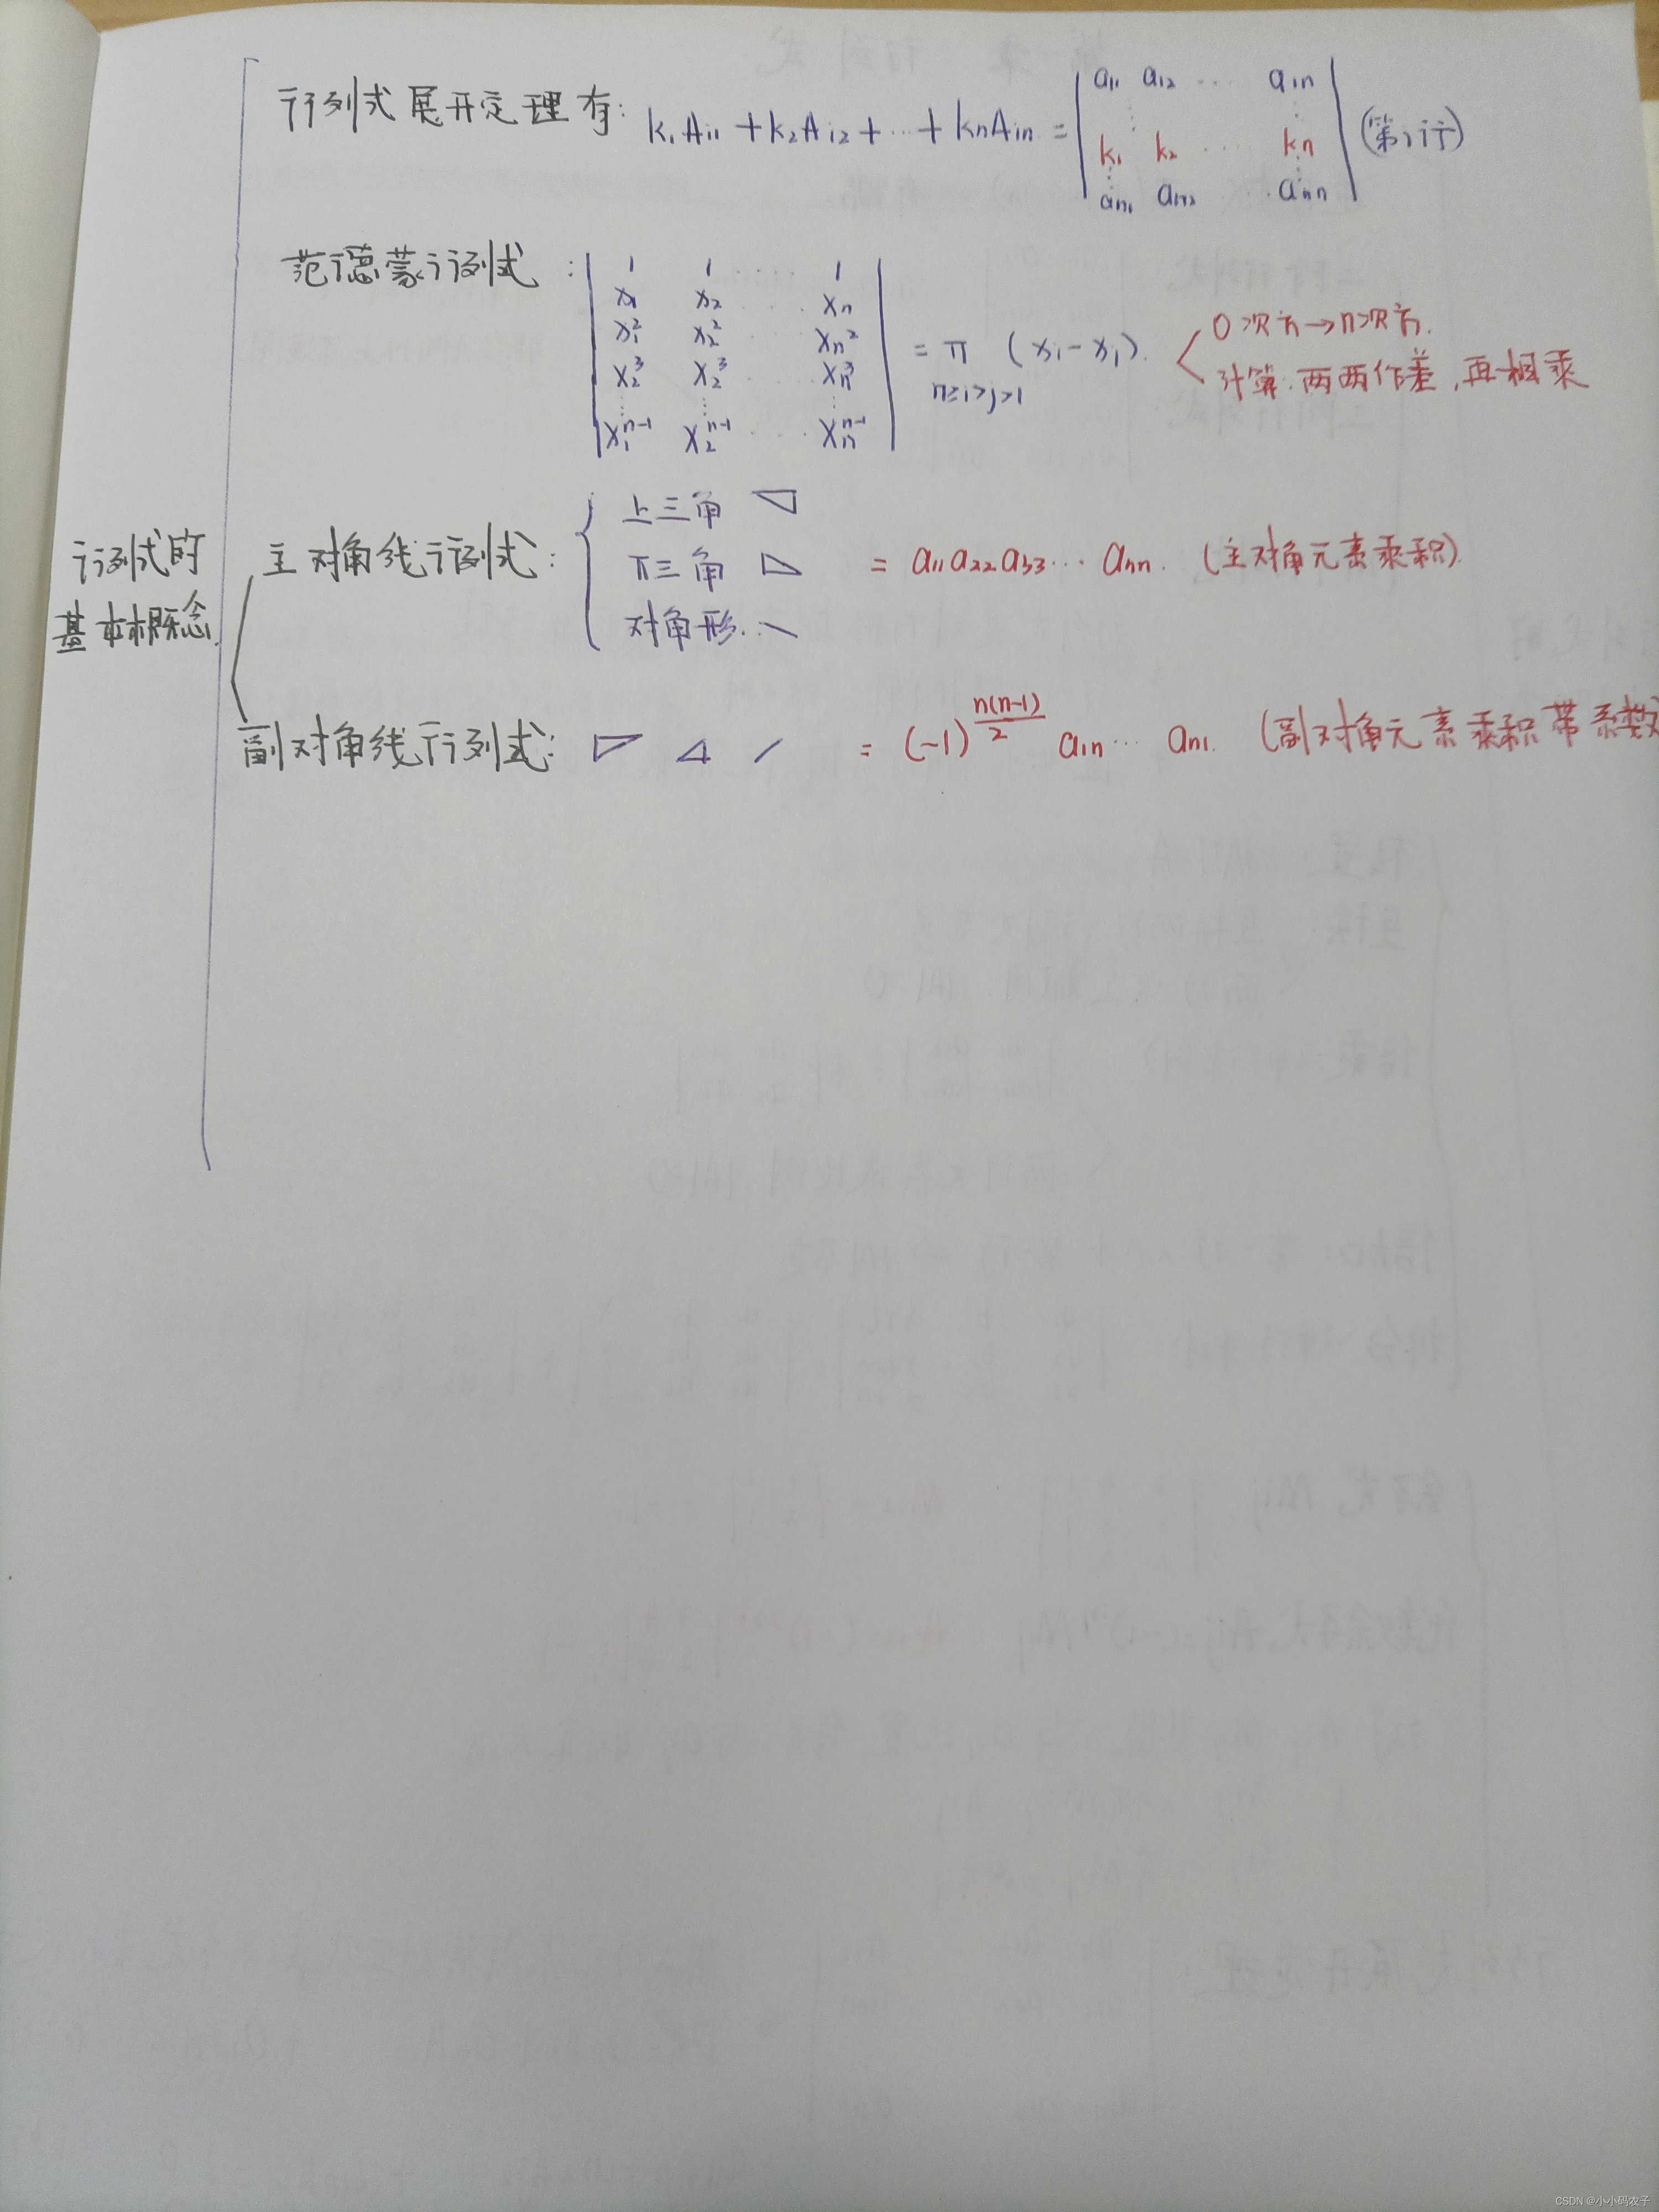 行列式展开定理有: k₁Ai1 + k₂Ai2 + ··· + knAin = | a11 a12 ··· a1n | (第i行)
k₁ k₂ ···· kn
an1 an2 ··· ann
范德蒙行列式:
1 1 1
x1 x2 ··· xn
x₁² x₂² ··· xn²
x₂³ x₂³ ··· xn³
x₁ⁿ⁻¹ x₂ⁿ⁻¹ ··· xnⁿ⁻¹
= π (xi - xj).
n≥i>j>1
0次方→n次方.
计算:两两作差,再相乘
行列式的
基本概念.
主对角线行列式:
上三角
下三角
对角形
= a11a22a33··· ann. (主对角元素乘积).
副对角线行列式: = (-1)^(n(n-1)/2) a1n··· an1. (副对角元素乘积带系数)
CSDN @小小码农子